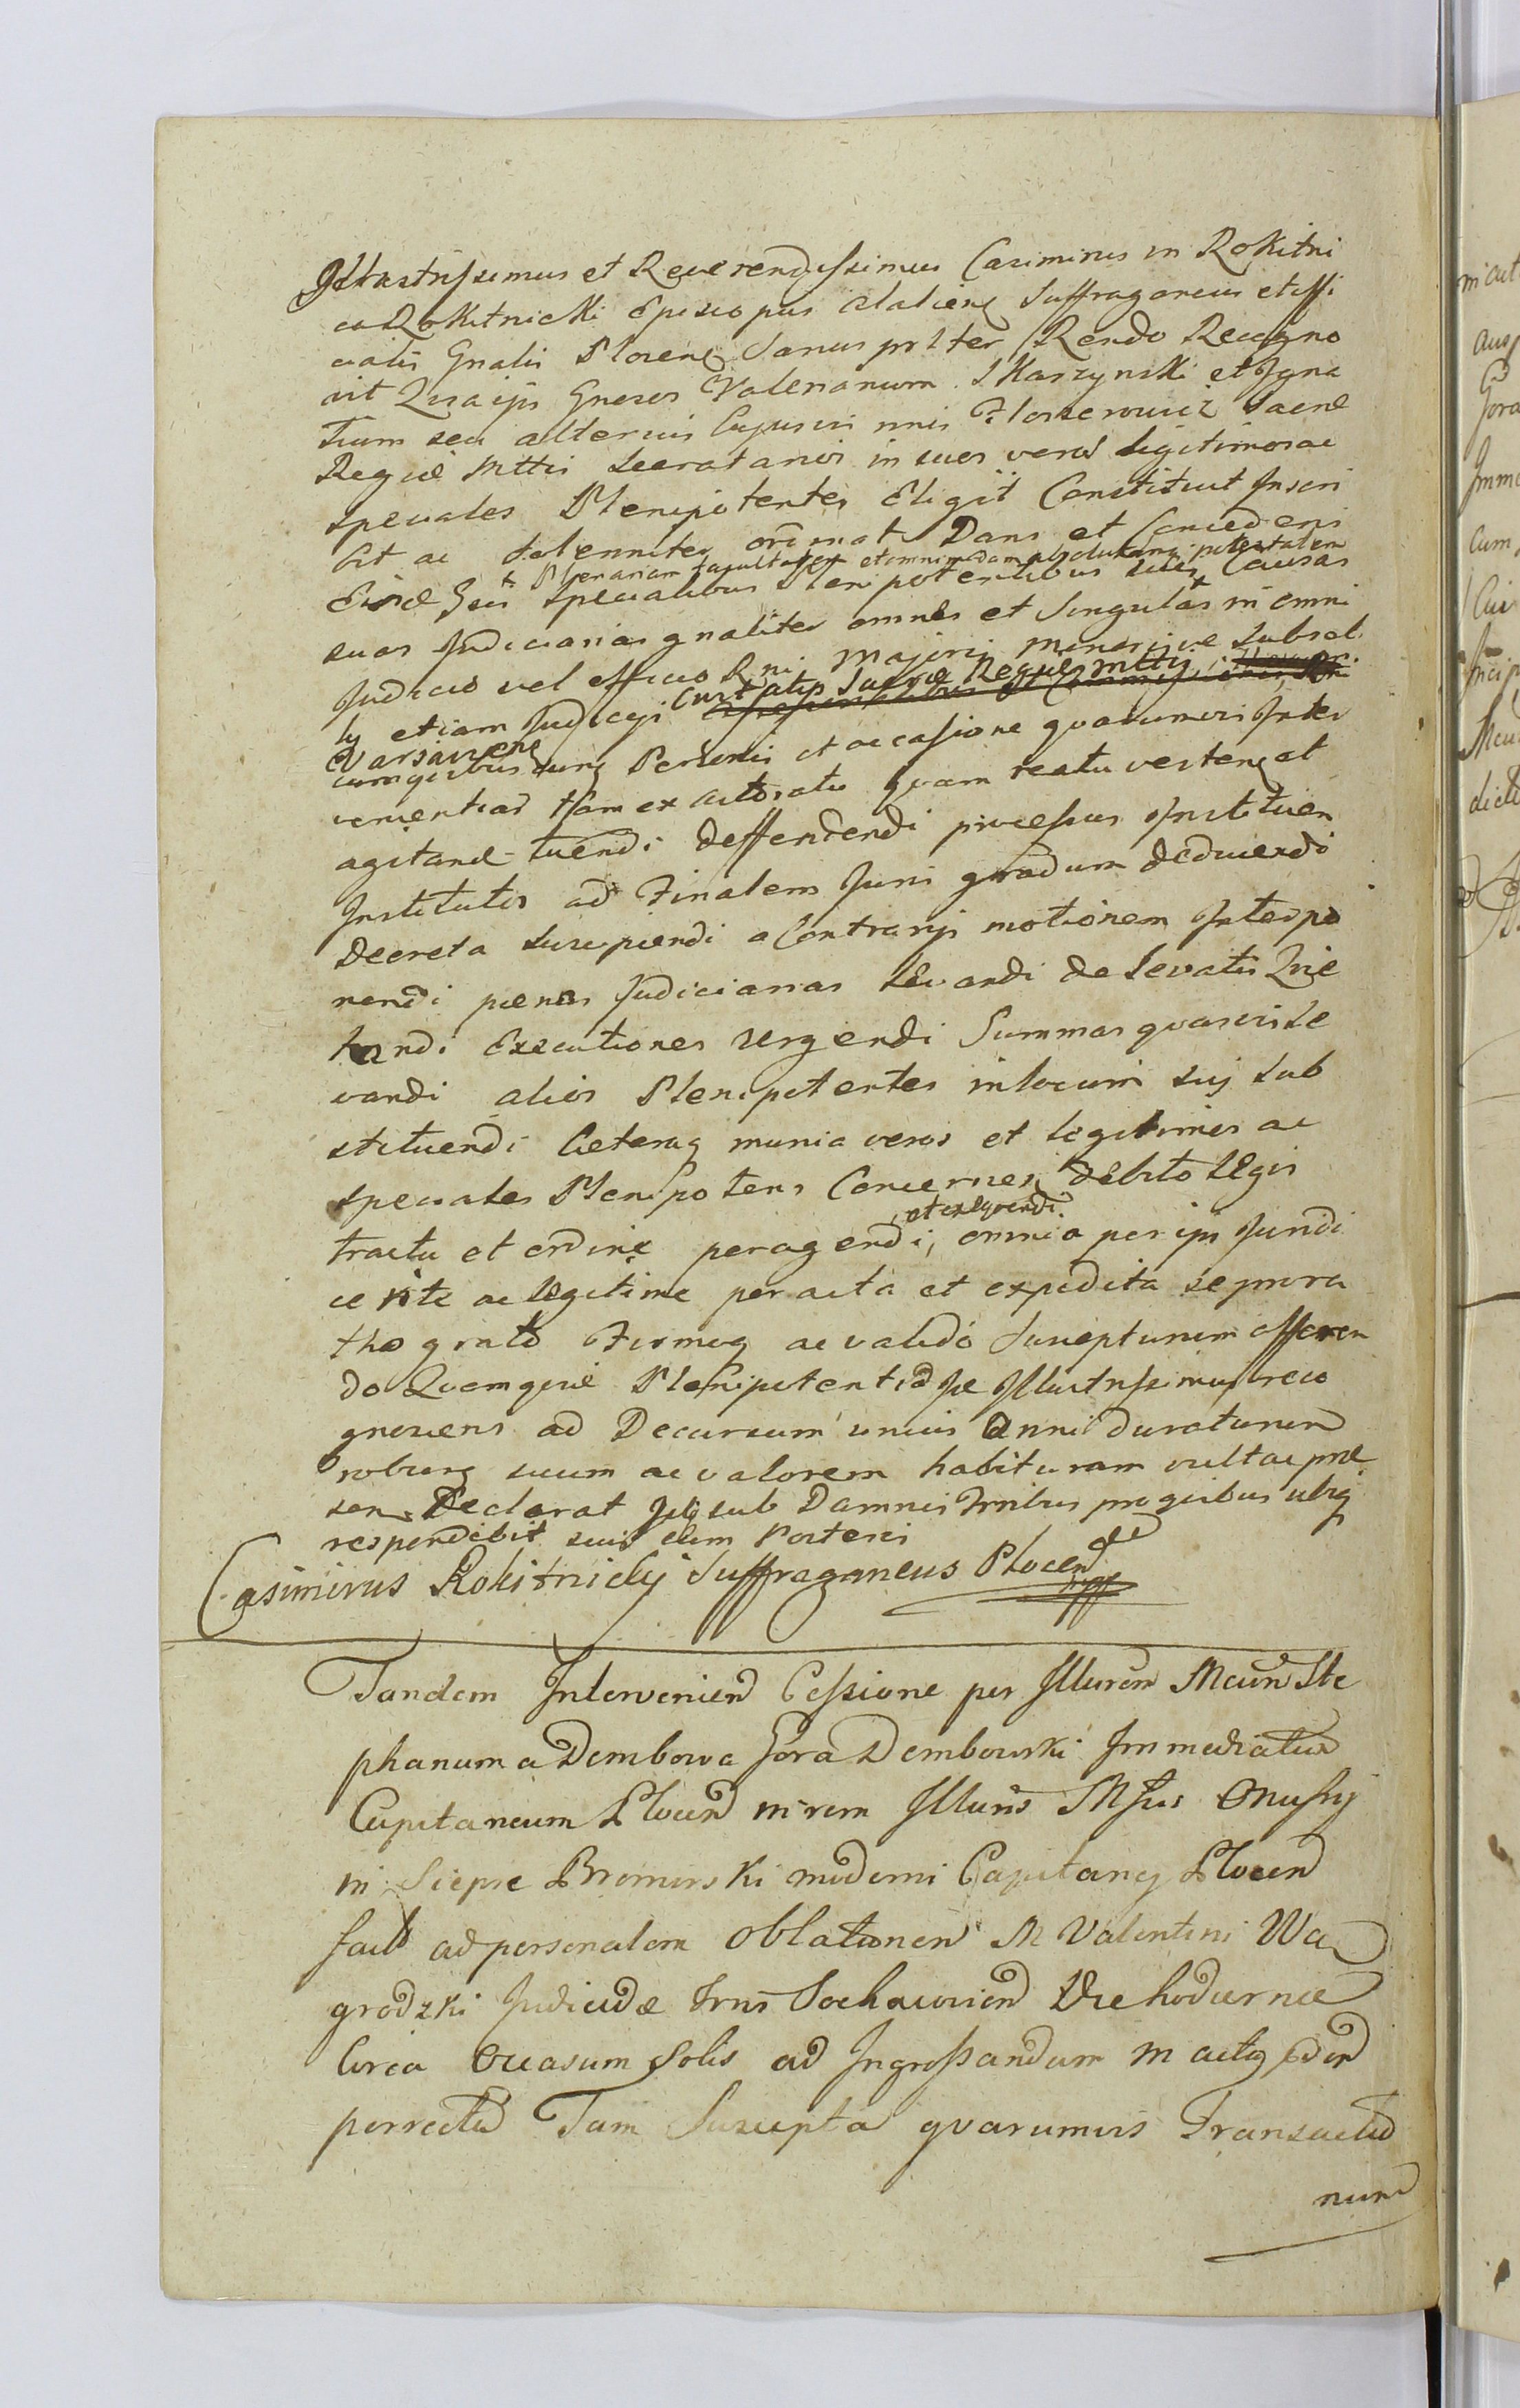 Illustrissimus et Reverendissimus Casimirus in Rokitni
ca Rokitnicki Episcopus Suffraganeus et offi
cialis Gnalis Plocens Sanus Recogno
vit Quia ipse Gnesos Valerianum Skarzynski et Igna
tium seu alterius cujusvis nnis Sacrae
Regiae Mttis Secretarios in suos veros legitimos ac
speciales Plenipotentes Eligit Constituit Inscri
bit ac Solenniter ordinat Dans et Concedens
+ Plenariam facultatem et omnimodam absolutam potestatem
specialibus Plenipotentibus suis Causas
suas Judiciarias gnaliter omnes et Singulas in omni
Judicio vel officio Rni Majori Minorive Subsel
ly etiam Judicyi Curiatis Sacrae Regiae Mttis
Varsaviens
cumquibusvis Personis et occasione quarumvis Inter
venientias tam ex actoratu quam reatu vertens et
agitand tuendi deffendendi processus Instituen
Institutos ad Finalem Juris gradum deducendi
Decreta suscipiendi a Contrarys motionem Interpo
nendi paenas Judiciarias Levandi de Levatis Quie
tandi Executiones urgendi Summas quasvis Le
vandi alios Plenipotentes in locum sui sub
stituendi Caeteraq munia veros et legitimos ac
speciales Plenipotens Concernen debito Legis
et exequendi
tractu et ordine peragendi, omnia per ips Juridi
ce rite ac legitime peracta et expedita se pro ra
tho grato Firmoq ac valido Suscepturum offeren
do Quamquid Plenipotentia Ise Illustrissimus reco
gnoscens ad Decursum unius Anni duraturum
roburq suum ac valorem habituram vult ac prae
sen. Declarat sub Damnis Trribus pro quibus ubiq
respondebit suis cum Posteris
Casimirus Rokitnicky Suffraganeus Plocen
Tandem Intervenien Cessione per Illurem Mcum Ste
phanum a Dembowa Gora Dembowski Immediatum
Capitaneum Plocen in rem Illuris Msus Onufry
in Siepre Bromirski moderni Capitanei Plocen
fact ad personalem Oblationem M Valentini Wa
grodzki Judicid Trris Sochaczovien Die hodiernae
Circa Occasum Solis ad Ingrossandum in acta eden
porrecta Tam Suscepta quarumvis Transactio
num